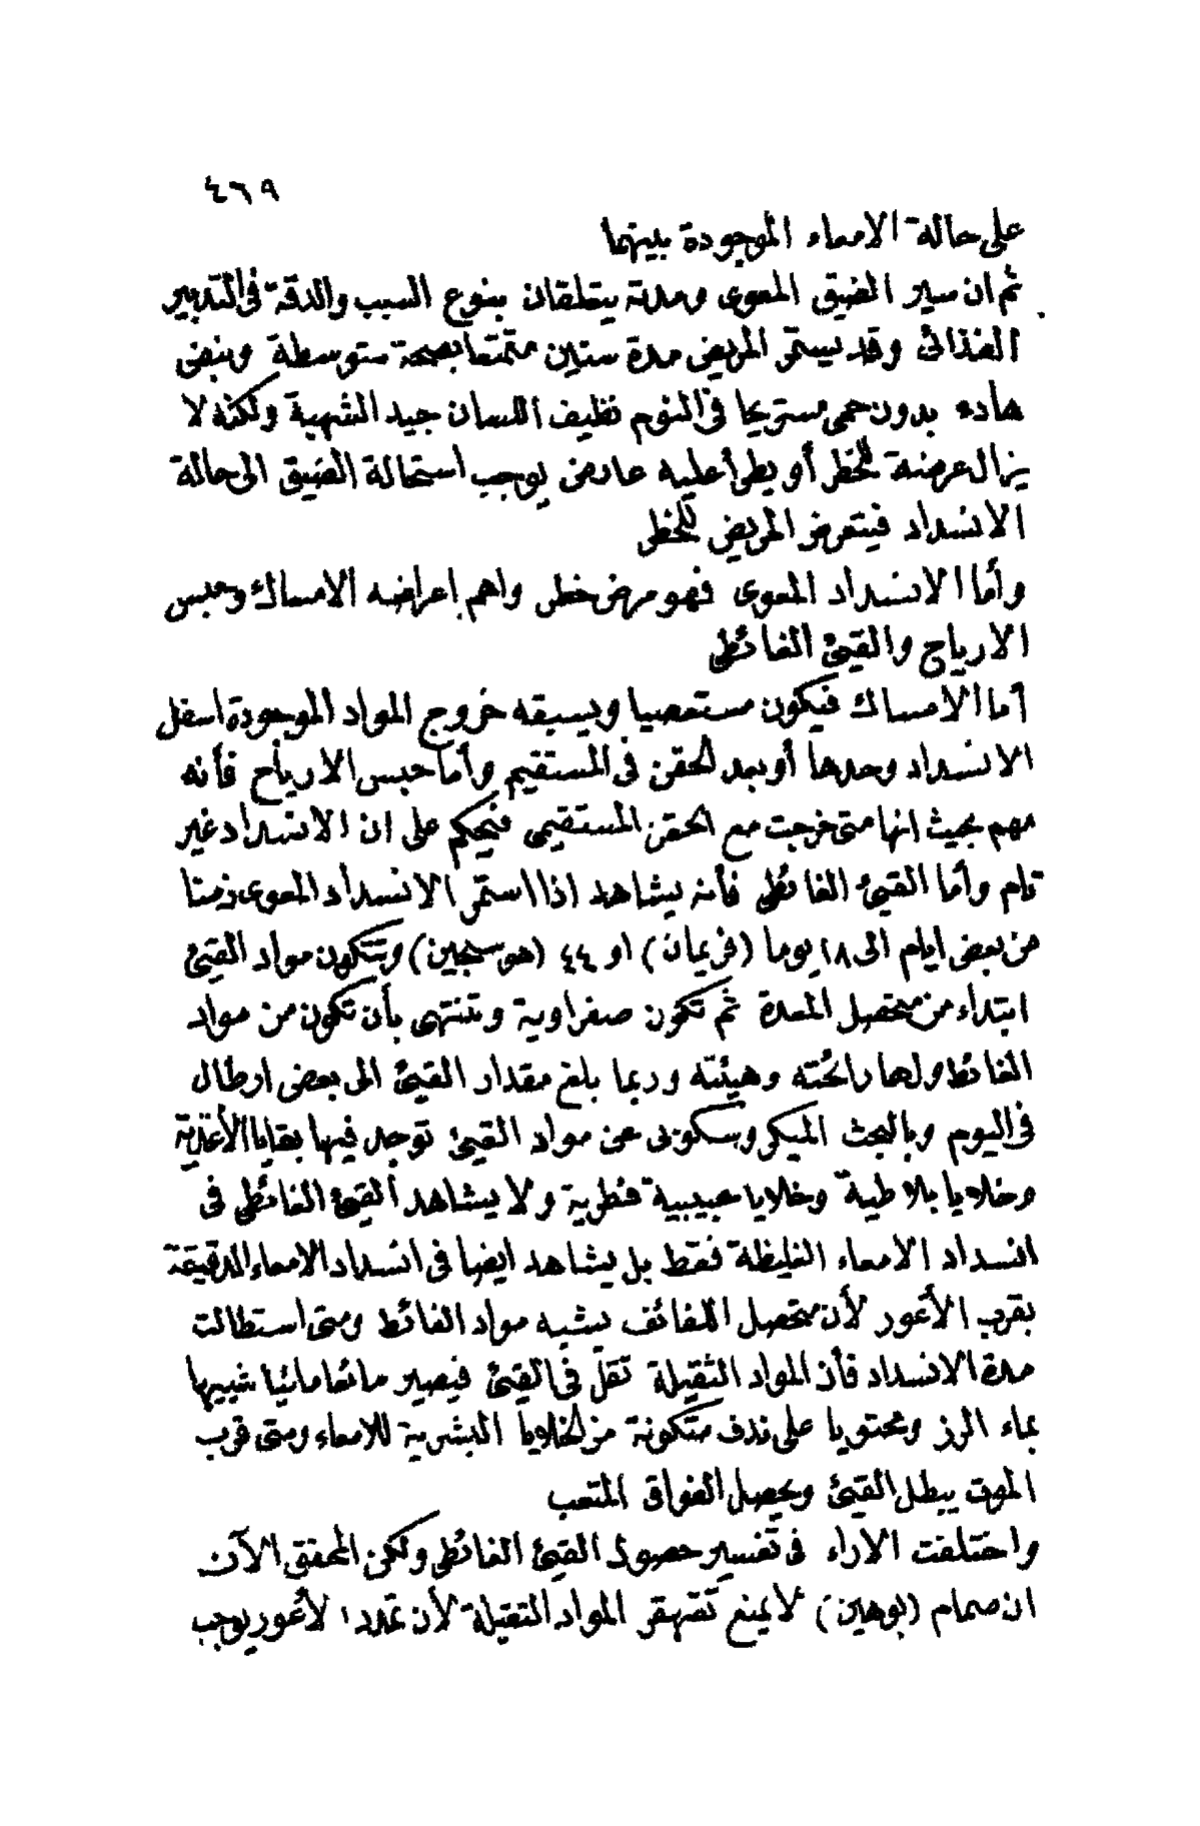 ٤٦٩
على حالة الامعاء الموجودة بينهما
ثم ان سير الضيق المعوى ومدته يتعلقان بنوع السبب والدقة فى التدبير
الغذائى وقد يستمر المريض مدة سنتين متمتعا بصحة متوسطة ونبض
هادء بدون حمى مستريحا فى النوم نظيف اللسان جيد الشهية ولكنه لا
يزال عرضة للخطر أو يطرأ عليه عارض يوجب استحالة الضيق الى حالة
الانسداد فيتعرض المريض للخطر
وأما الانسداد المعوى فهو مرض خطر واهم اعراضه الامساك وحبس
الارياح والقيئ الغائطى
أما الامساك فيكون مستعصيا ويسبقه خروج المواد الموجودة اسفل
الانسداد وحدها أو بعد الحقن فى المستقيم وأما حبس الارياح فأنه
مهم بحيث انها متى خرجت مع الحقن المستقيمى فيحكم على ان الانسداد غير
تام وأما القيئ الغائطى فأنه يشاهد اذا استمر الانسداد المعوى زمنا
من بعض ايام الى ١٨ يوما (فريمان) او ٤٤ (هوسجين) وتتكون مواد القيئ
ابتداء من متحصل المعدة ثم تكون صفراوية وتنتهى بأن تكون من مواد
الغائط ولها رائحته وهيئته وربما بلغ مقدار القيئ الى بعض ارطال
فى اليوم وبالبحث الميكروسكوبى عن مواد القيئ توجد فيها بقايا الأغذية
وخلايا بلاطية وخلايا حبيبية فطرية ولا يشاهد القيئ الغائطى فى
انسداد الامعاء الغليظة فقط بل يشاهد ايضا فى انسداد الامعاء الدقيقة
بقرب الأعور لأن متحصل اللفائف يشبه مواد الغائط ومتى استطالت
مدة الانسداد فأن المواد الثقيلة تقلّ فى القيئ فيصير مائعا مائيا شبيها
بماء الرز ومحتويا على ندف متكونة من الخلايا البشرية للامعاء ومتى قرب
الموت يبطل القيئ ويحصل الفواق المتعب
واختلفت الاراء فى تفسير حصول القيئ الغائطى ولكن المحقق الآن
ان صمام (بوهين) لا يمنع تقهقر المواد الثقيلة لأن تمدد الأعور يوجب